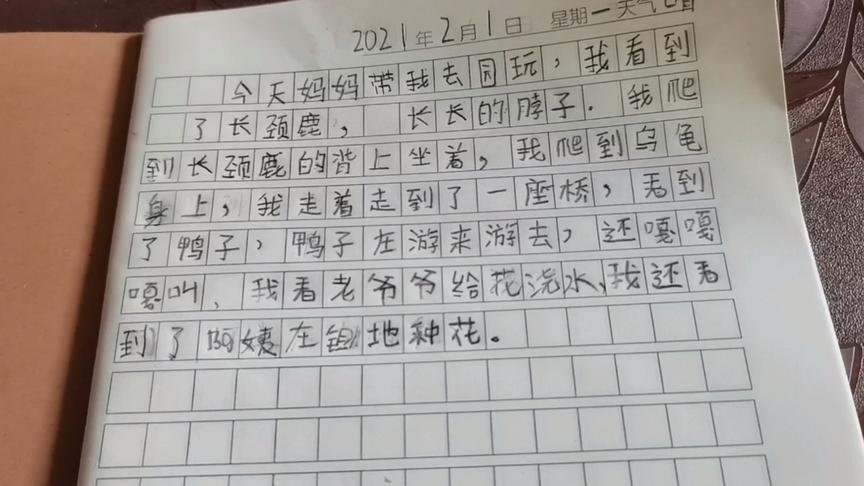 2021年2月1日 星期一天气晴
今天妈妈带我去园玩，我看到
了长颈鹿，长长的脖子.我爬
到长颈鹿的背上坐着，我爬到乌龟
身上，我走着走到了一座桥，看到
了鸭子，鸭子在游来游去，还嘎嘎
嘎叫、我看老爷爷给花浇水、我还看
到了阿姨在锄地种花。